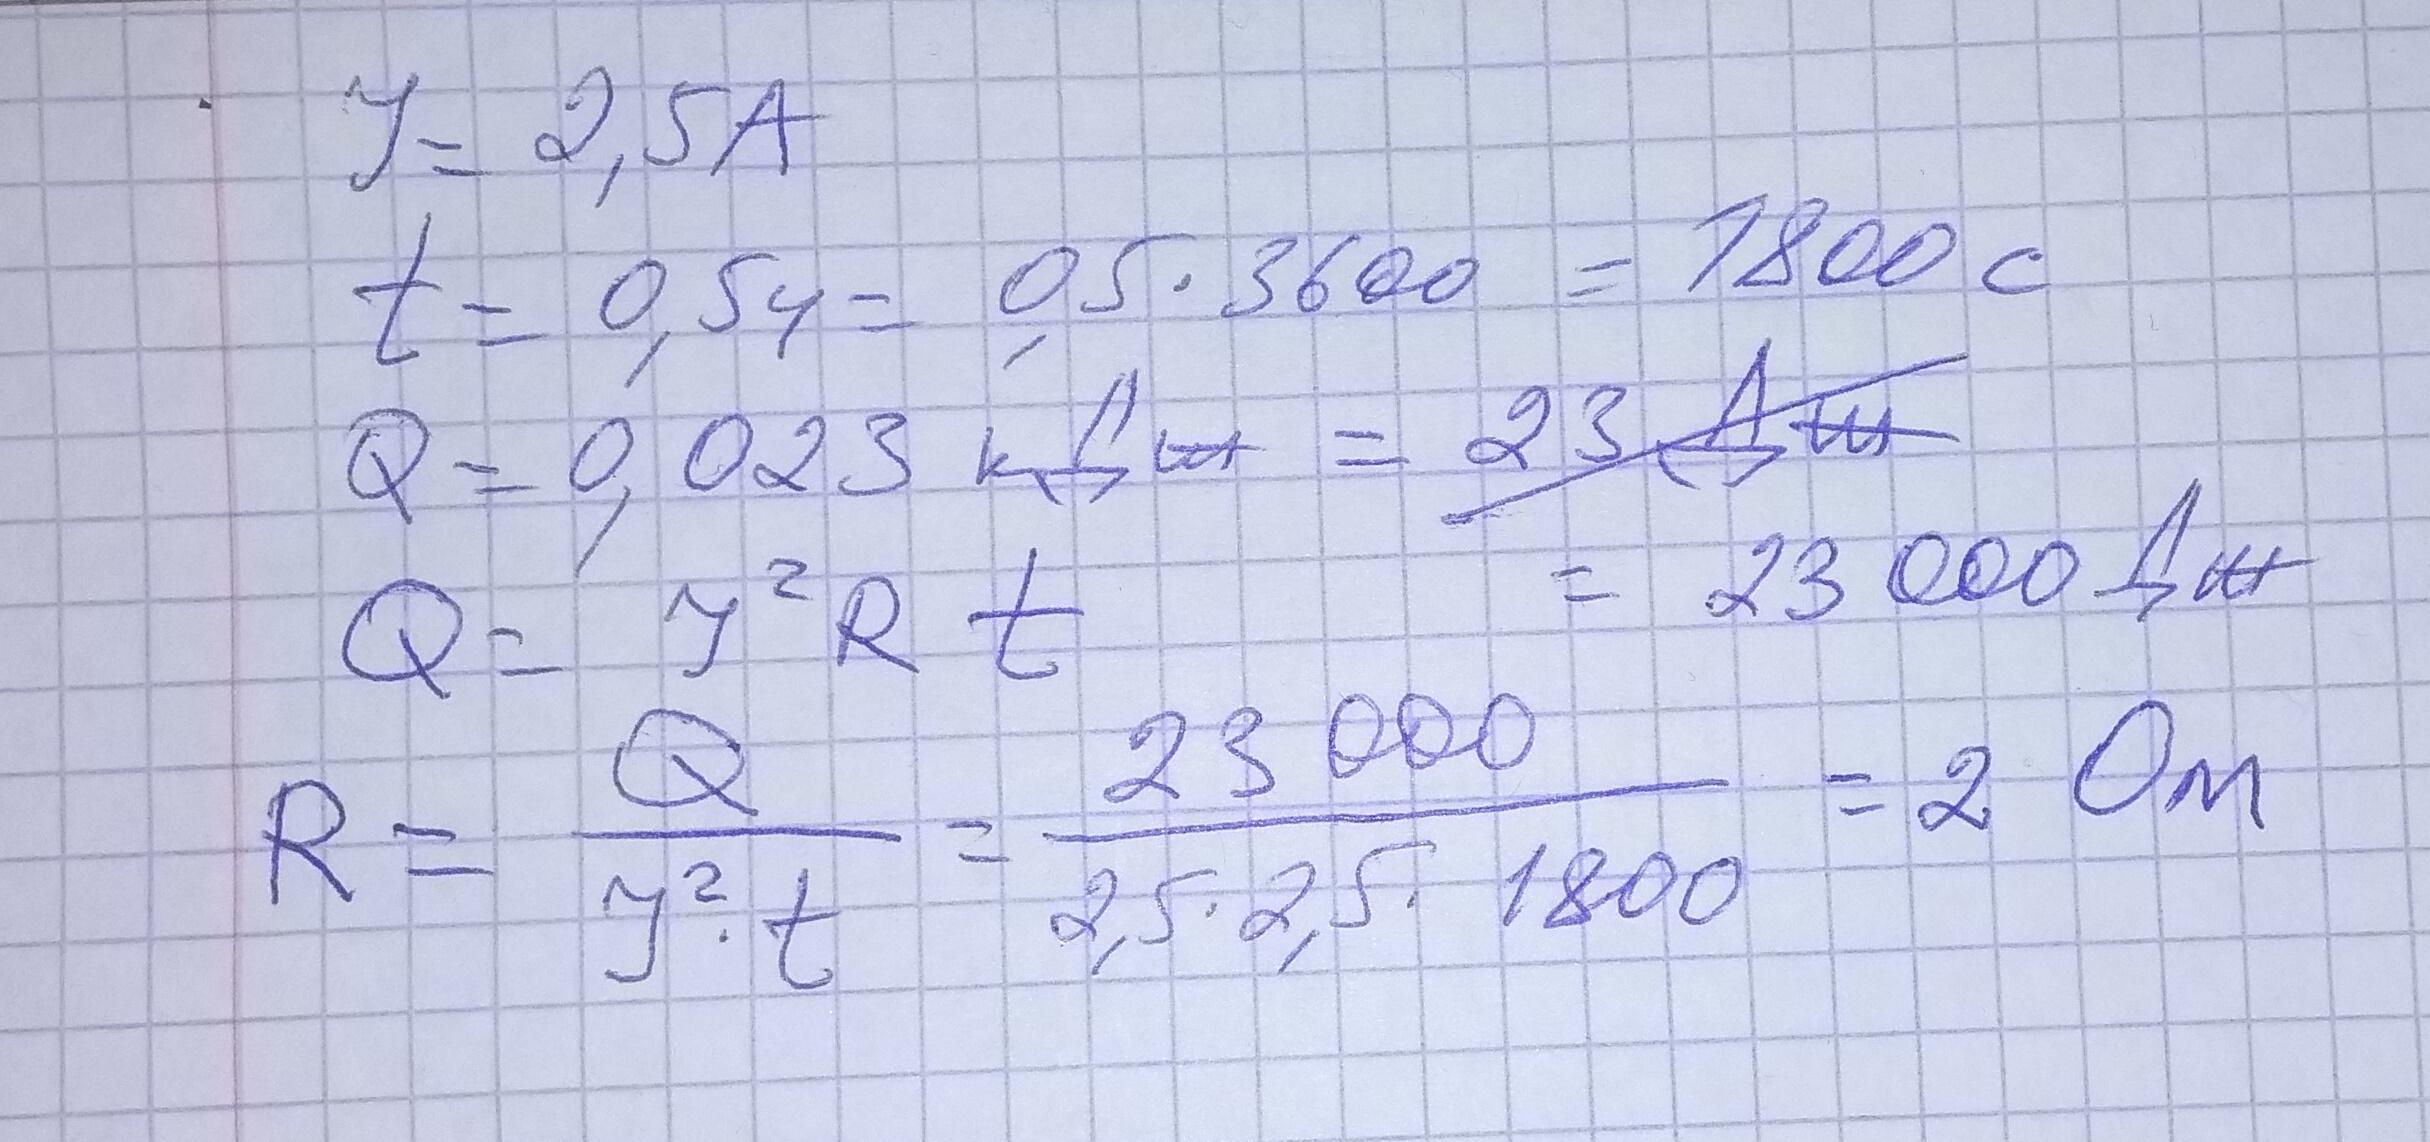 I = 2,5 А
t = 0,5 ч = 0,5 · 3600 = 1800 с
Q = 0,023 кДж = 23 Дж
= 23 000 Дж
Q = I² R t
R = Q / I² · t = 23 000 / 2,5 · 2,5 · 1800 = 2 Ом